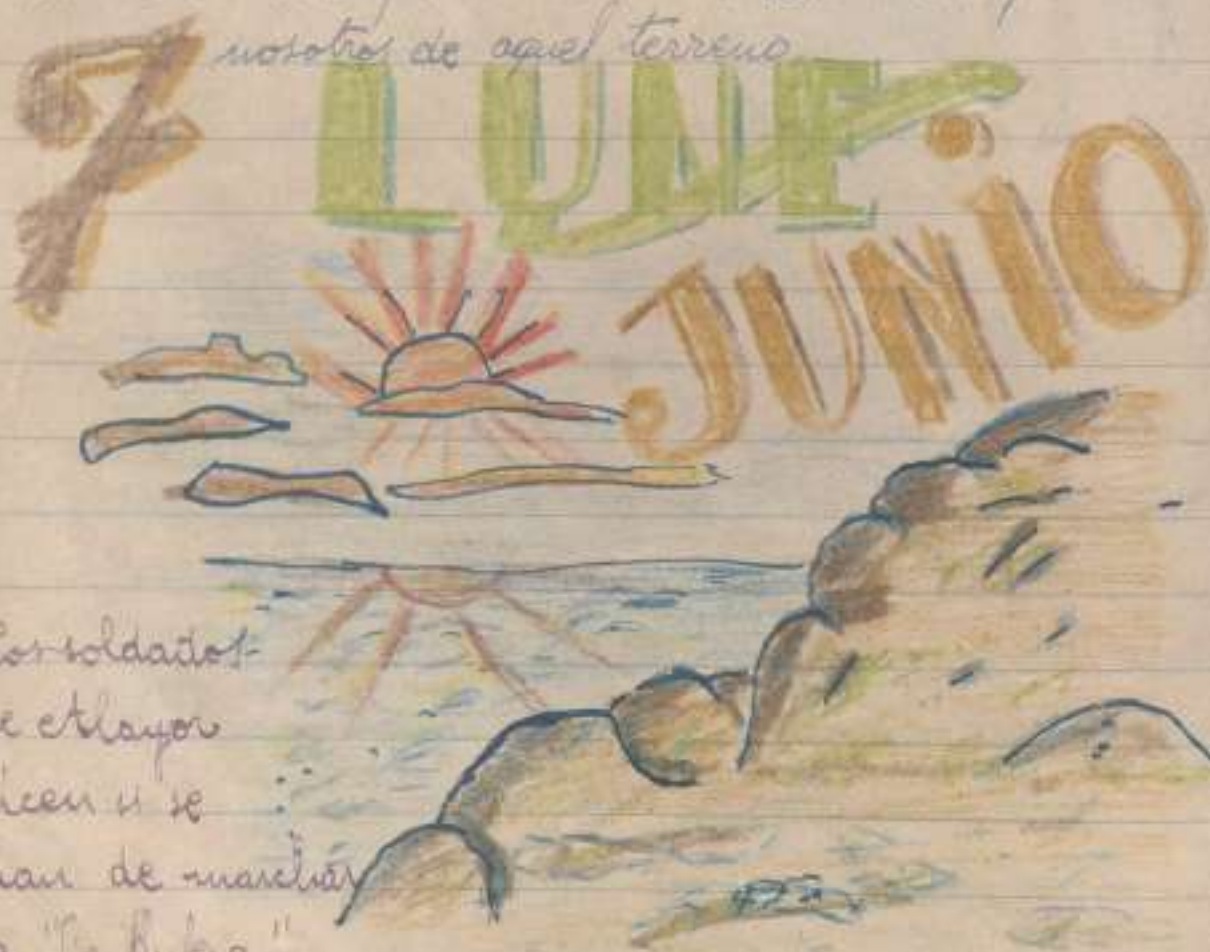 nosotros de aquel terreno
7 LUNES
JUNIO
los soldados
de Alayor
dicen si se
han de marchar